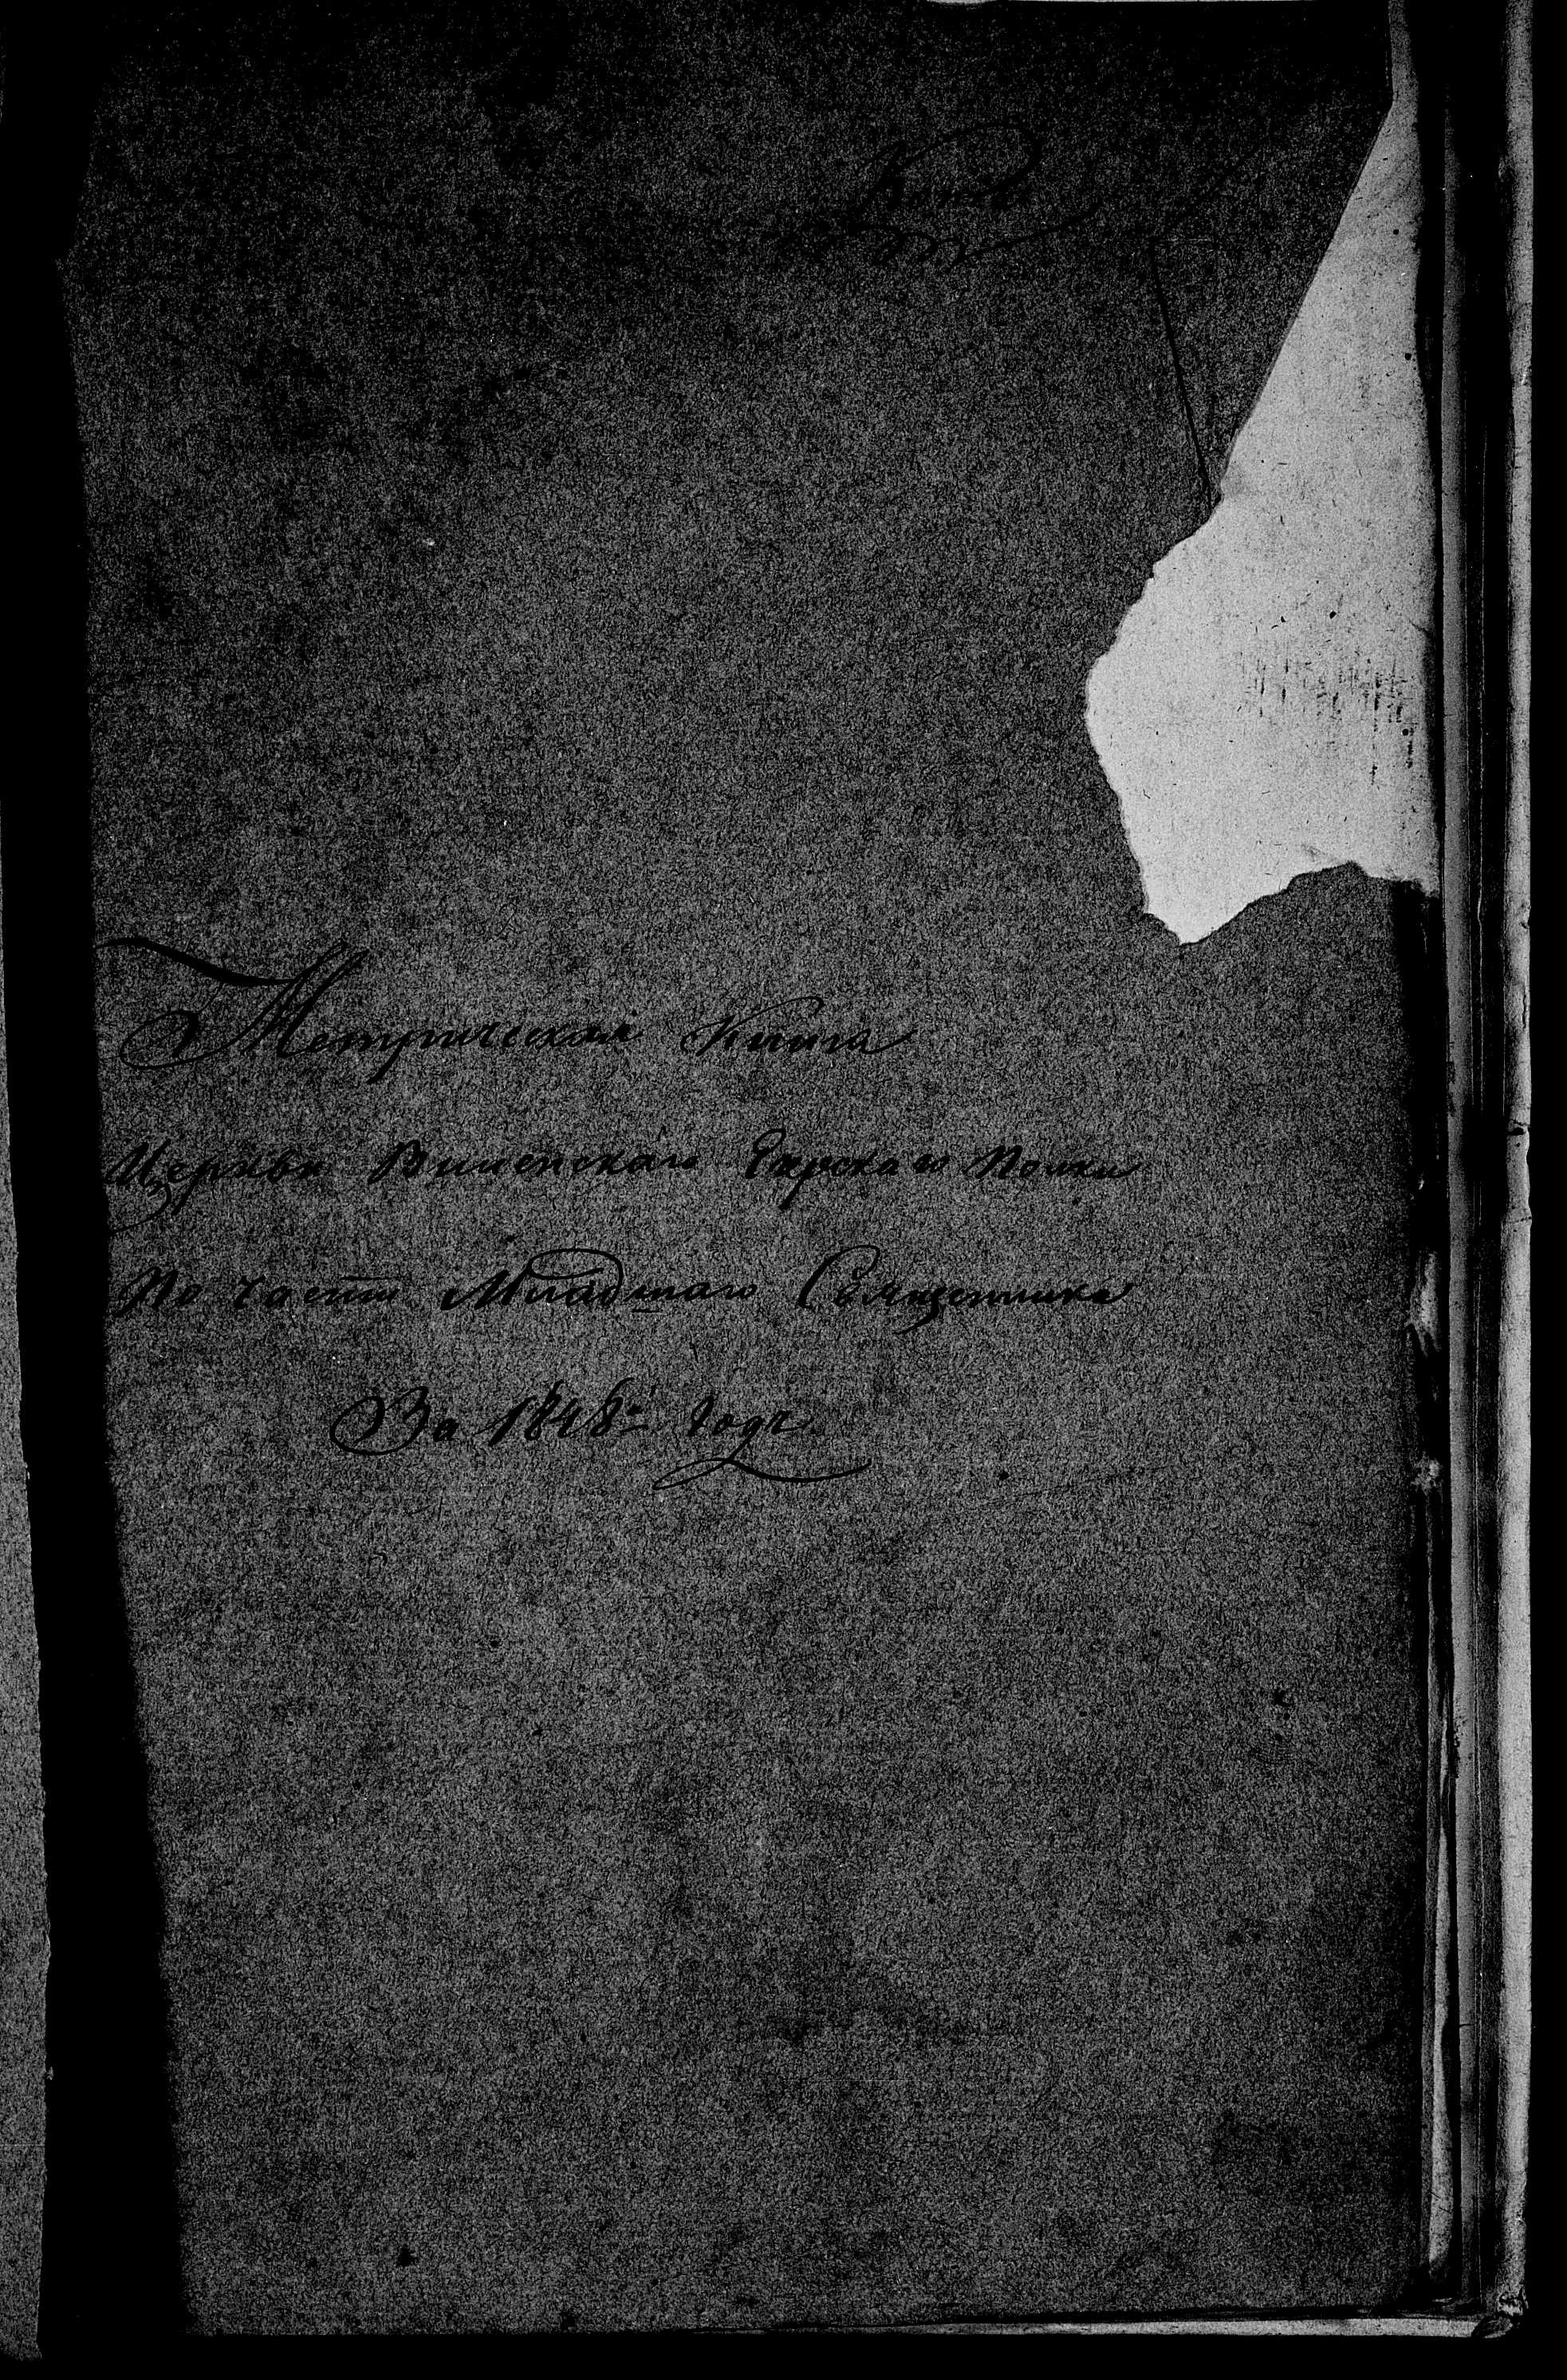 Копія
Метрическая Книга
Церкви Виленскаго Егерскаго Полка
По части Младшаго Священника
За 1848й годъ.